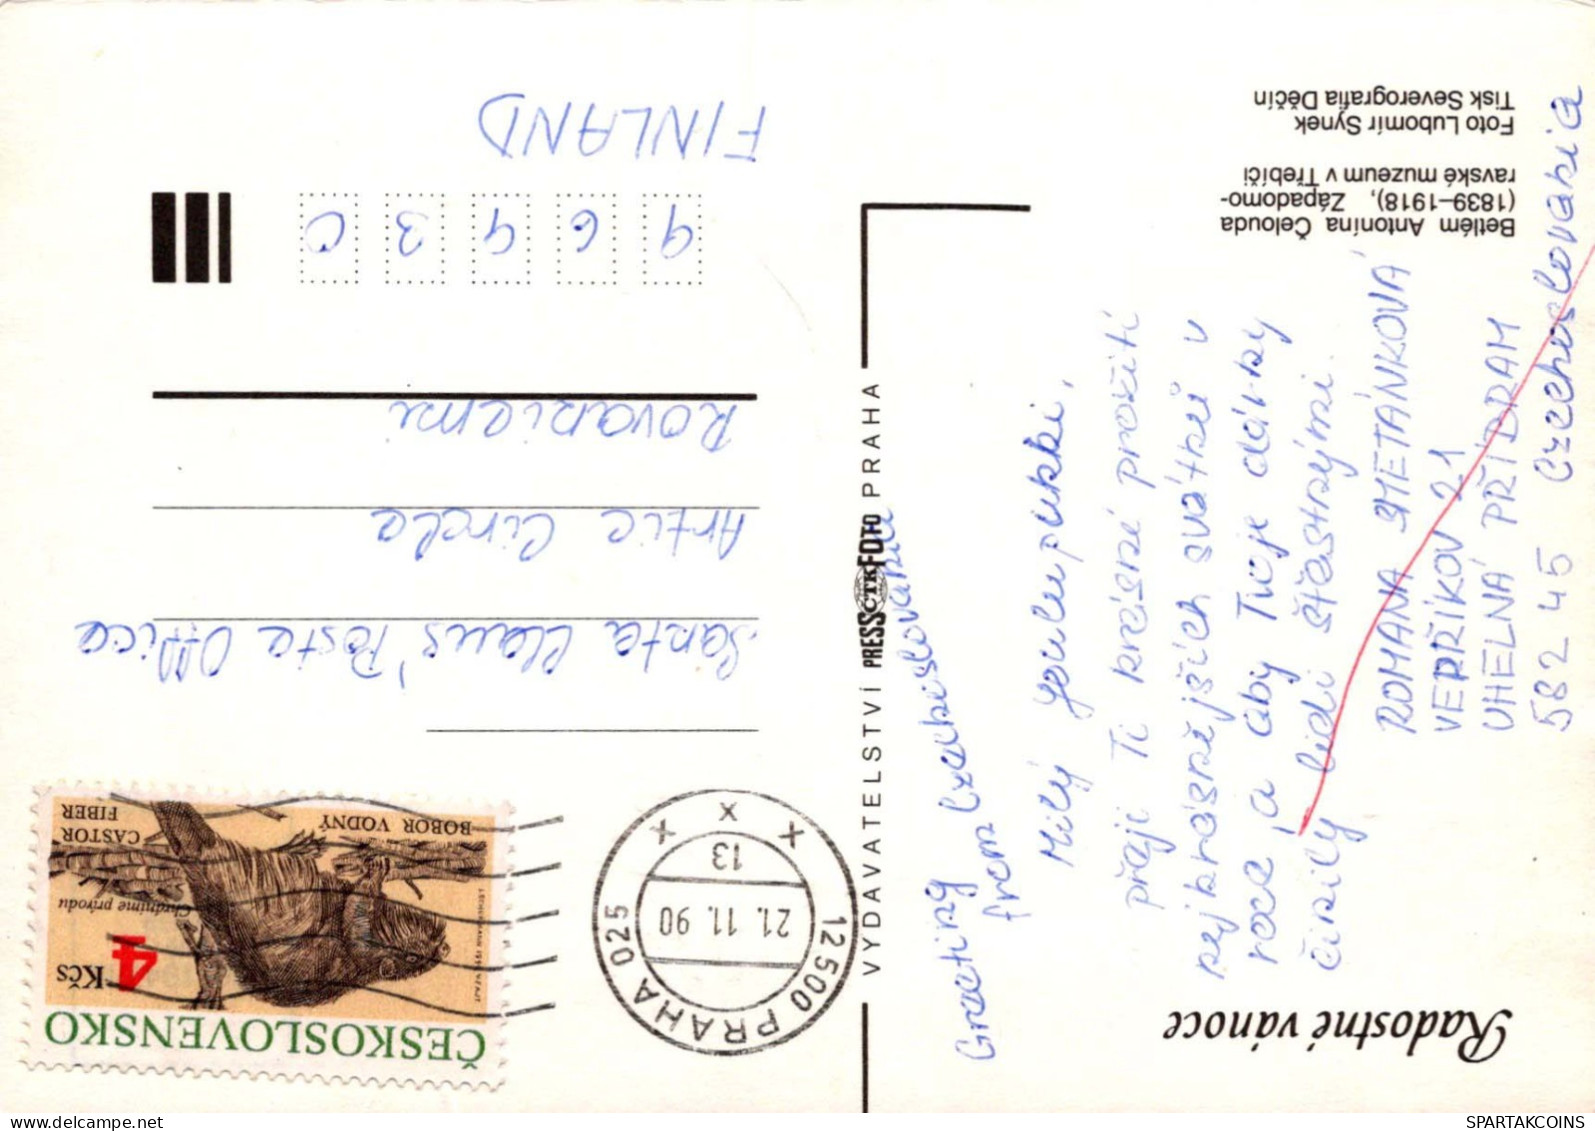 Radostné vánoce
Greeting
from Czechoslovakia
Milý Youlupukki,
přeji Ti krásné prožití
nejkrásnějších svátků v
roce, a aby Tvoje dárky
činily lidi šťastnými.
ROMANA SMETÁNKOVÁ
VEPŘÍKOV 21
UHELNÁ PŘÍBRAM
582 45 Czechoslovakia
Betlém Antonína Čelouda
(1839–1918), Západomo-
ravské muzeum v Třebíči
Foto Lubomír Synek
Tisk Severografia Děčín
VYDAVATELSTVÍ PRESSFOTO PRAHA
ČTK
ČESKOSLOVENSKO
4 Kčs
Chráníme prírodu
CASTOR
FIBER
BOBOR VODNÝ
12500 PRAHA 025
21.11.90
13
x x x
Santa Claus' Poste Office
Artic Circle
Rovaniemi
9 6 9 3 0
FINLAND
SPARTAKCOINS